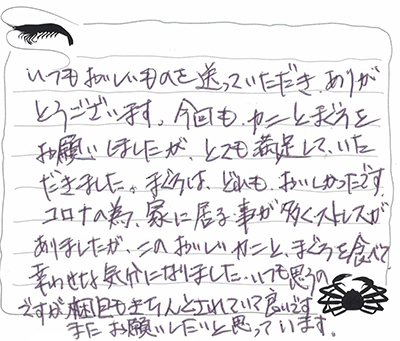 いつもおいしいものを送っていただき、ありが
とうございます。今回も、カニとまぐろを
お願いしましたが、とても満足して、いた
だきました。まぐろは、どれも、おいしかったです。
コロナの為、家に居る事が多くストレスが
ありましたが、このおいしいカニと、まぐろを食べて、
幸わせな気分になりました。いつも思うの
ですが梱包もきちんとされていて良いです
またお願いしたいと思っています。